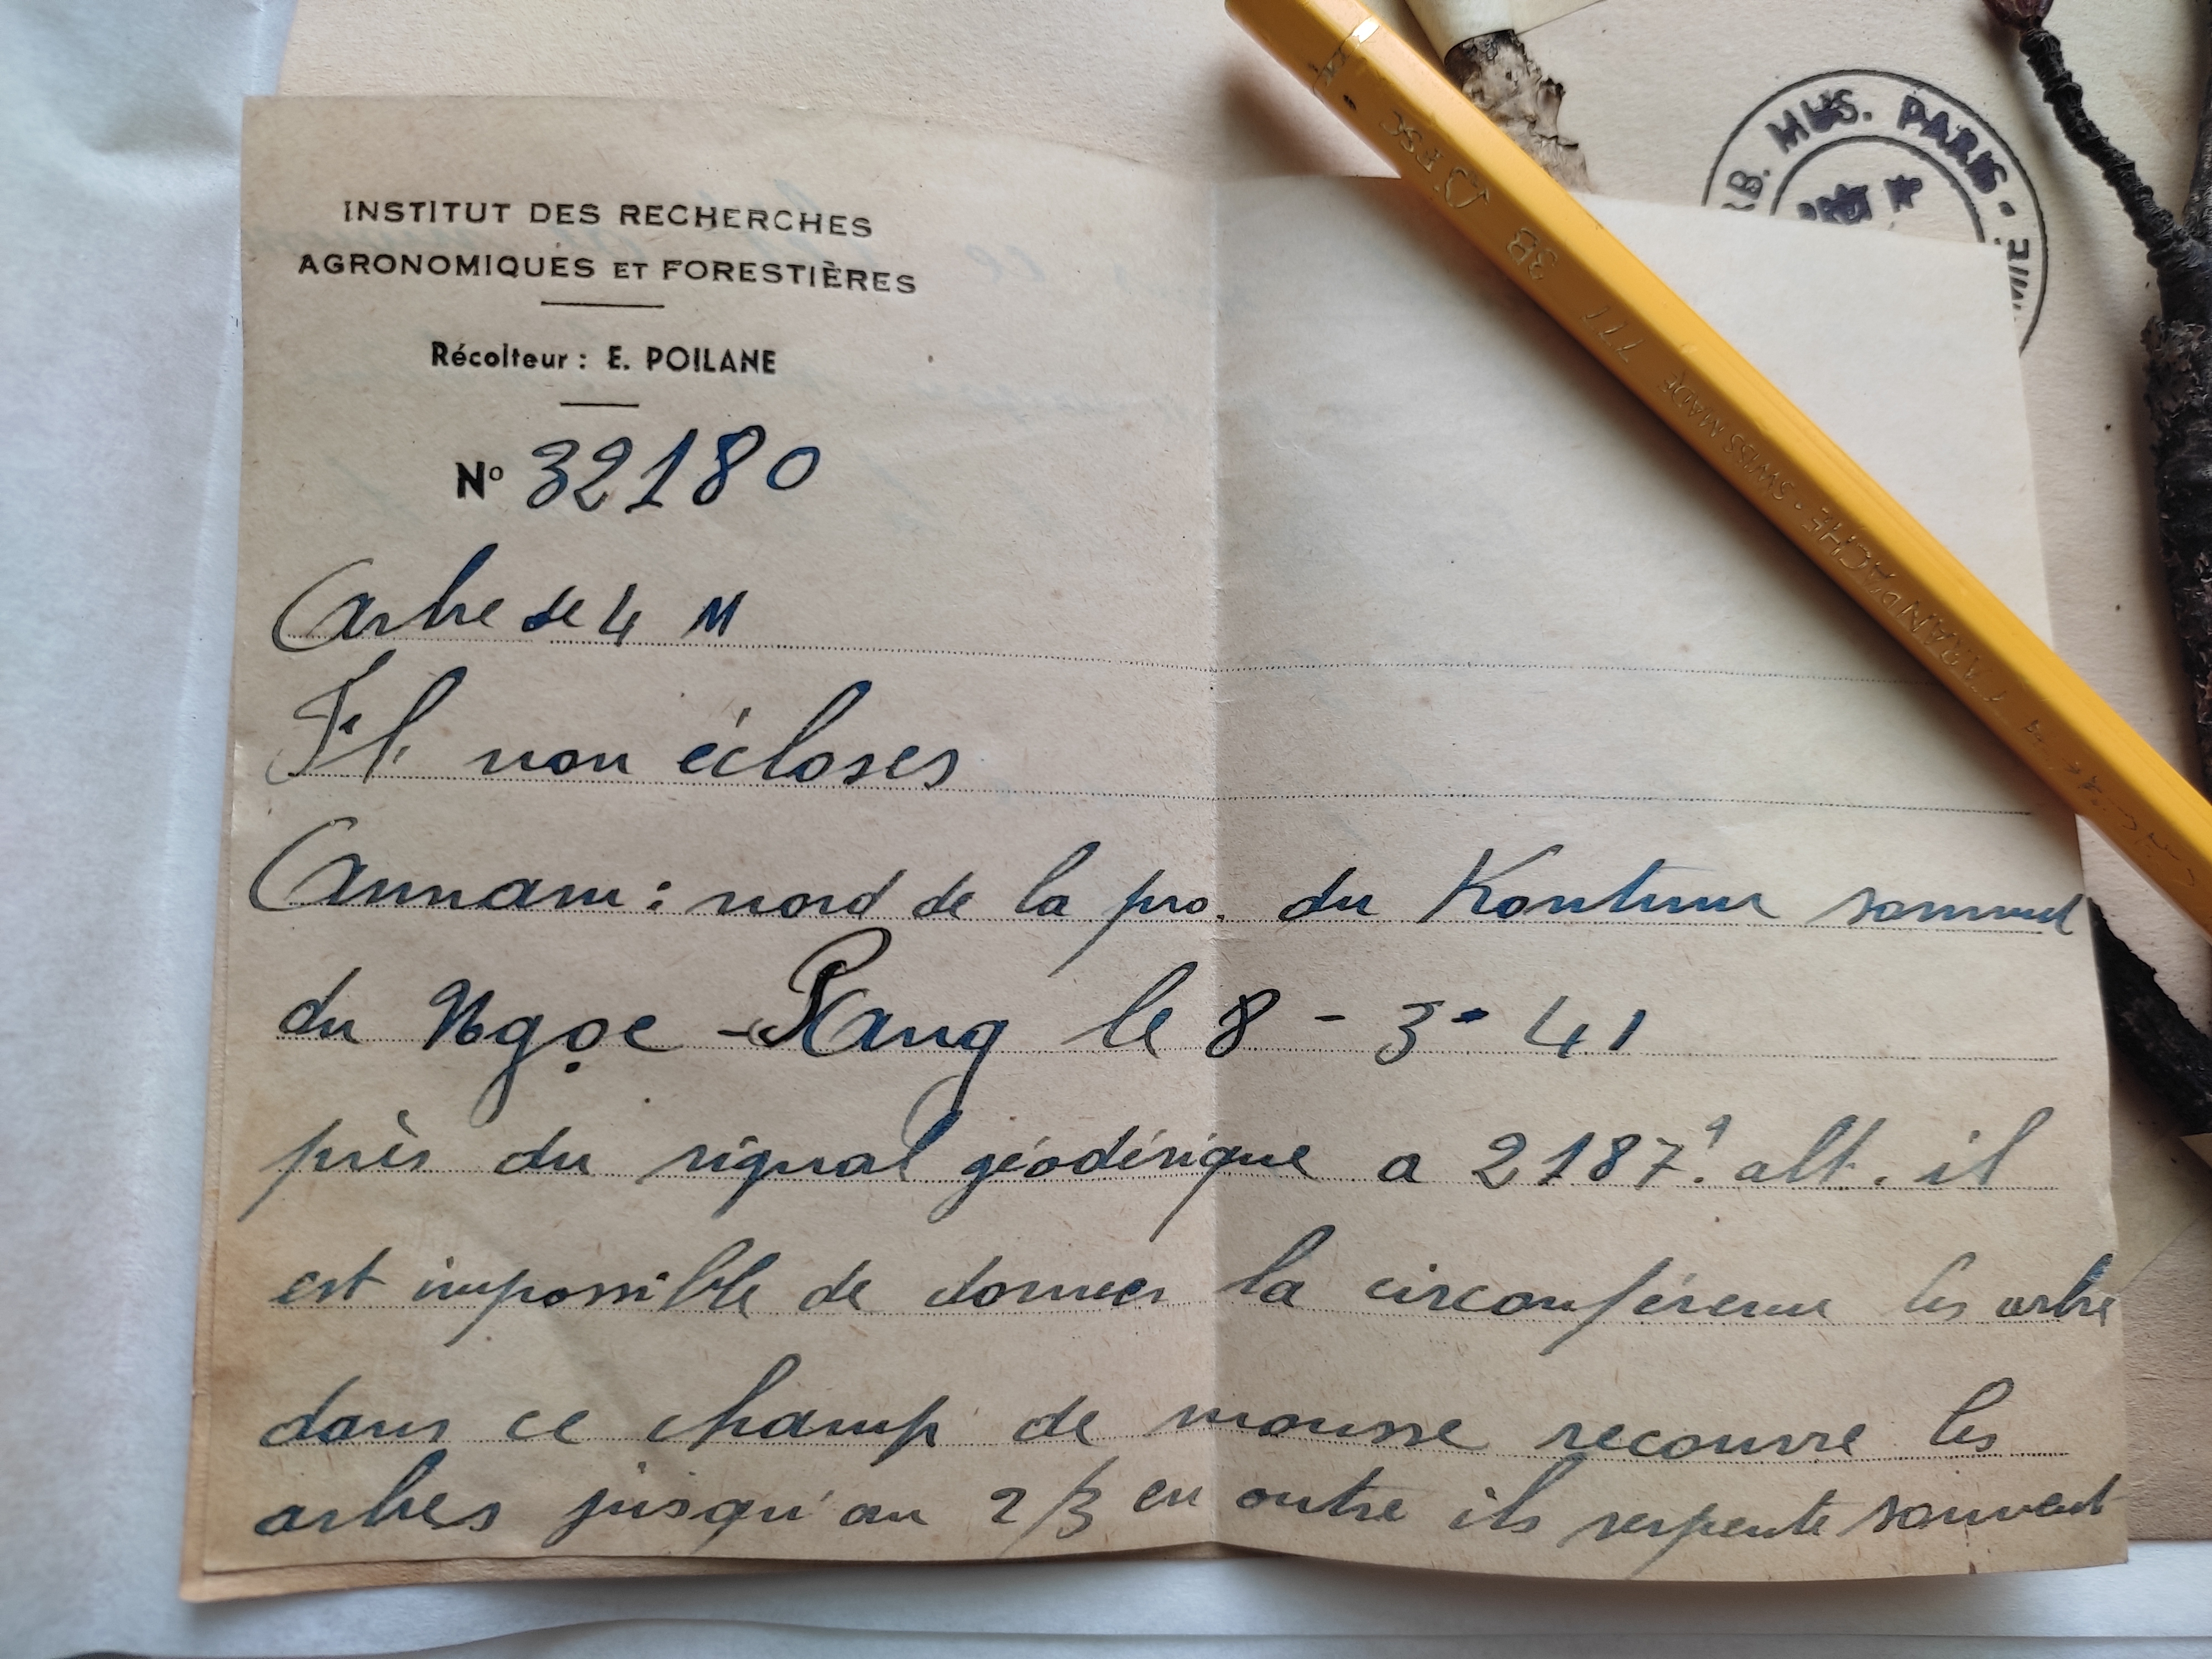 INSTITUT DES RECHERCHES
AGRONOMIQUES ET FORESTIÈRES
Récolteur : E. POILANE
N° 32180
Arbre de 4 M
Fl. non écloses
Annam : nord de la pro. du Kontum sommet
du Ngọc - Pang le 8 - 3 - 41
près du signal géodésique a 2187. alt. il
est impossible de donner la circonférence les arbre
dans ce champ de mousse recouvre les
arbes jusqu'au 2/3 en outre ils serpente souvent
HERB. MUS. PARIS.
FSC
3B 777 SWISS MADE · CARAN D'ACHE